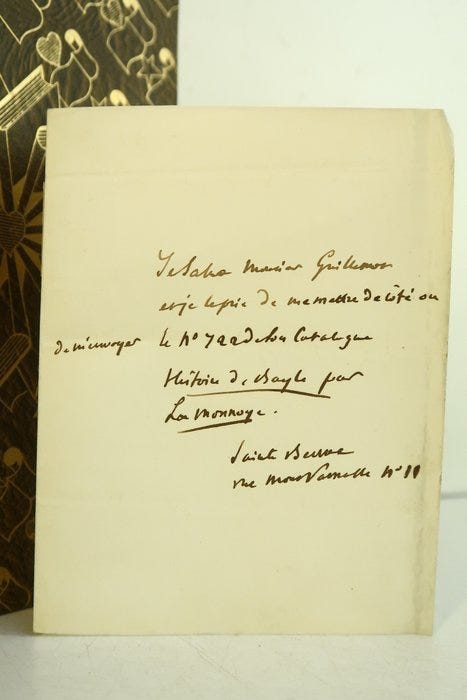 Je salue Monsieur Guillemot
et je le prie de me mettre de côté ou
de m'envoyer le No 722 de son Catalogue
Histoire de Bayle par
La Monnoye.
Sainte Beuve
rue Mont Parnasse No 11